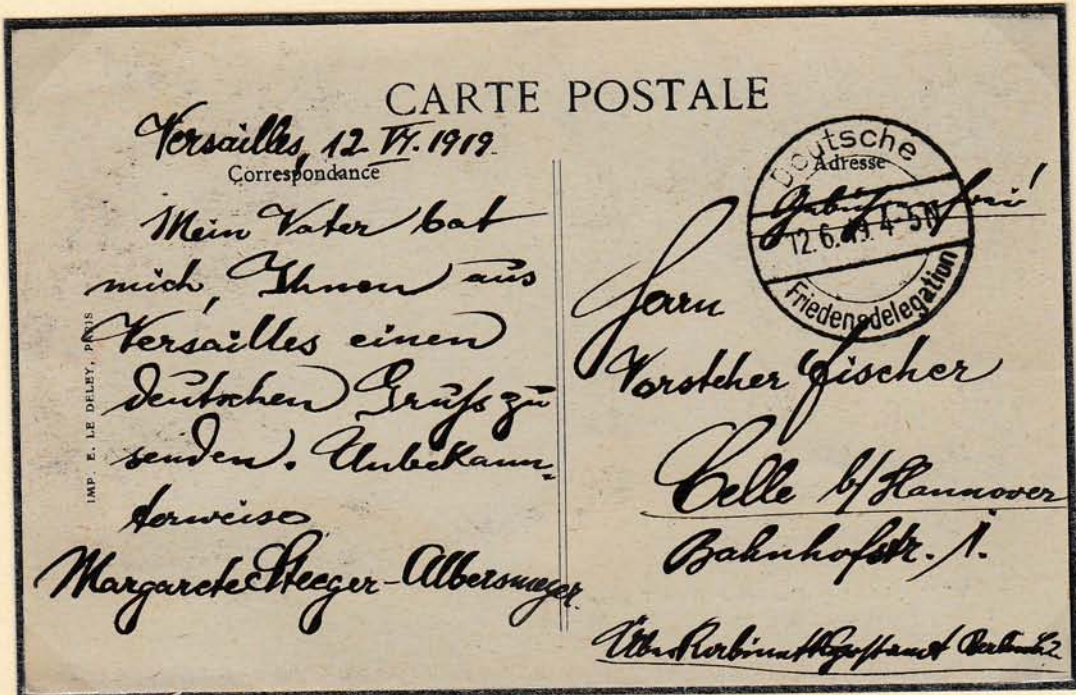 CARTE POSTALE
Versailles, 12. VI. 1919.
Correspondance
Mein Vater bat
mich, Ihnen aus
Versailles einen
deutschen Gruß zu
senden. Unbekann-
terweise
Margarete Steeger-Albersmeyer.
IMP. E. LE DELEY, PARIS
Deutsche
Adresse
Gebührenfrei!
12.6.19. 4-5N
Friedensdelegation
Herrn
Vorsteher Fischer
Celle b/Hannover
Bahnhofstr. 1.
Über Postamt Berlin